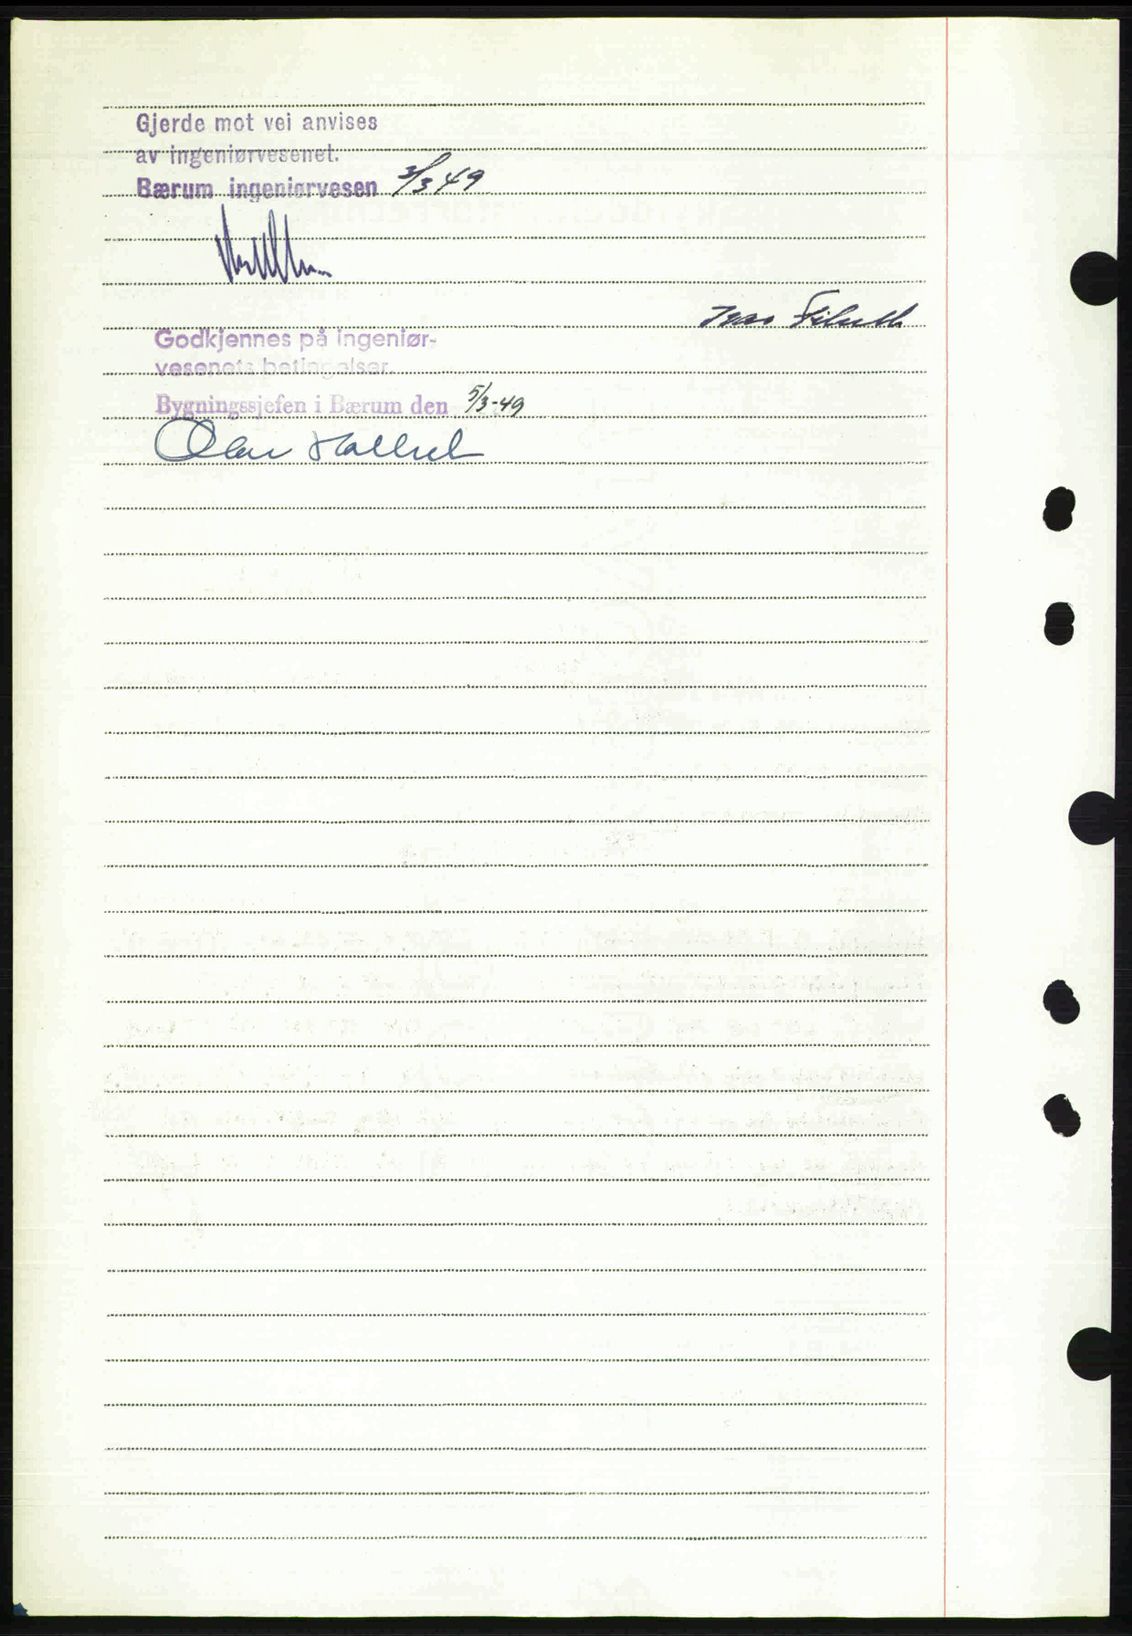 Gjerde mot vei anvises
av ingeniørvesenet.
Bærum ingeniørvesen 3/3 49
Godkjennes på ingeniør-
vesenets betingelser.
Bygningssjefen i Bærum den 5/3-49